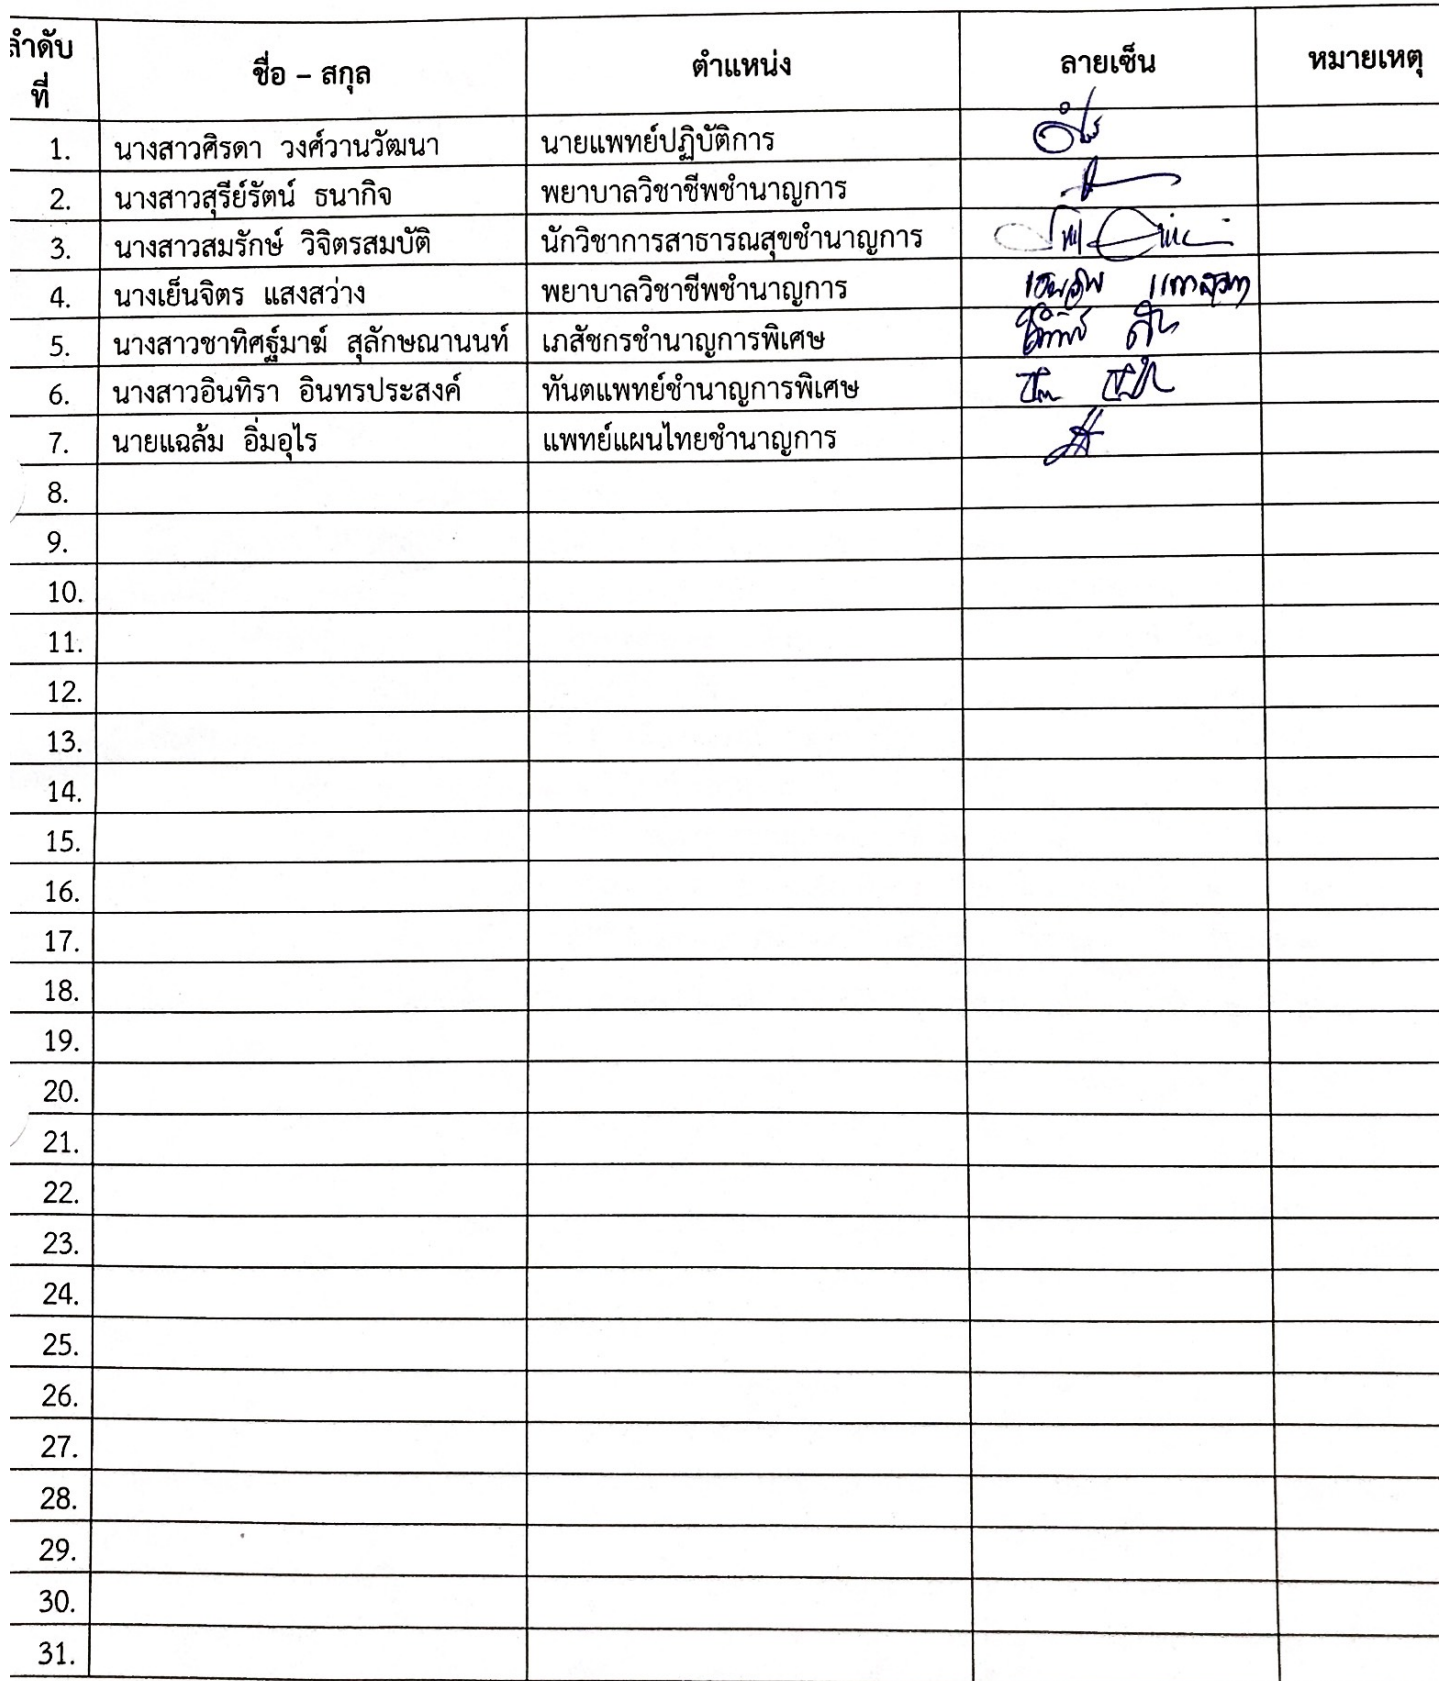 ลำดับ
ที่
ชื่อ – สกุล ตำแหน่ง ลายเซ็น หมายเหตุ
1. นางสาวศิรดา วงศ์วานวัฒนา นายแพทย์ปฏิบัติการ
2. นางสาวสุรีย์รัตน์ ธนากิจ พยาบาลวิชาชีพชำนาญการ
3. นางสาวสมรักษ์ วิจิตรสมบัติ นักวิชาการสาธารณสุขชำนาญการ
4. นางเย็นจิตร แสงสว่าง พยาบาลวิชาชีพชำนาญการ
5. นางสาวชาทิศฐ์มาฆ์ สุลักษณานนท์ เภสัชกรชำนาญการพิเศษ
6. นางสาวอินทิรา อินทรประสงค์ ทันตแพทย์ชำนาญการพิเศษ
7. นายแฉล้ม อิ่มอุไร แพทย์แผนไทยชำนาญการ
8.
9.
10.
11.
12.
13.
14.
15.
16.
17.
18.
19.
20.
21.
22.
23.
24.
25.
26.
27.
28.
29.
30.
31.